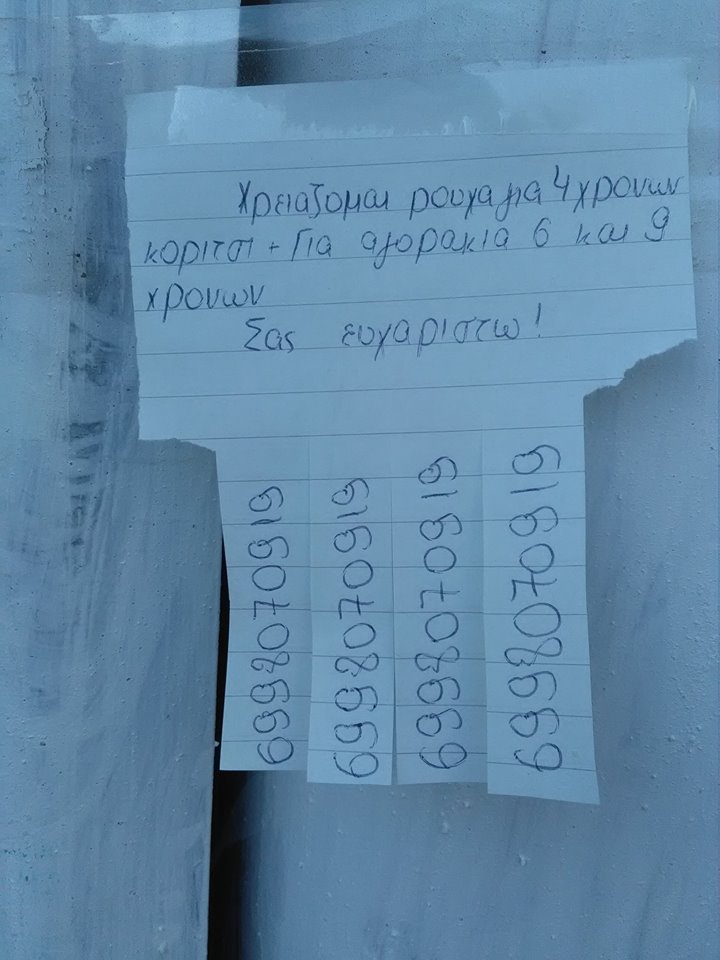 Χρειαζομαι ρουχα για 4 χρονων
κοριτσι + Για αγορακια 6 και 9
χρονων
Σας ευχαριστω!
6998070919
6998070919
6998070919
6998070919